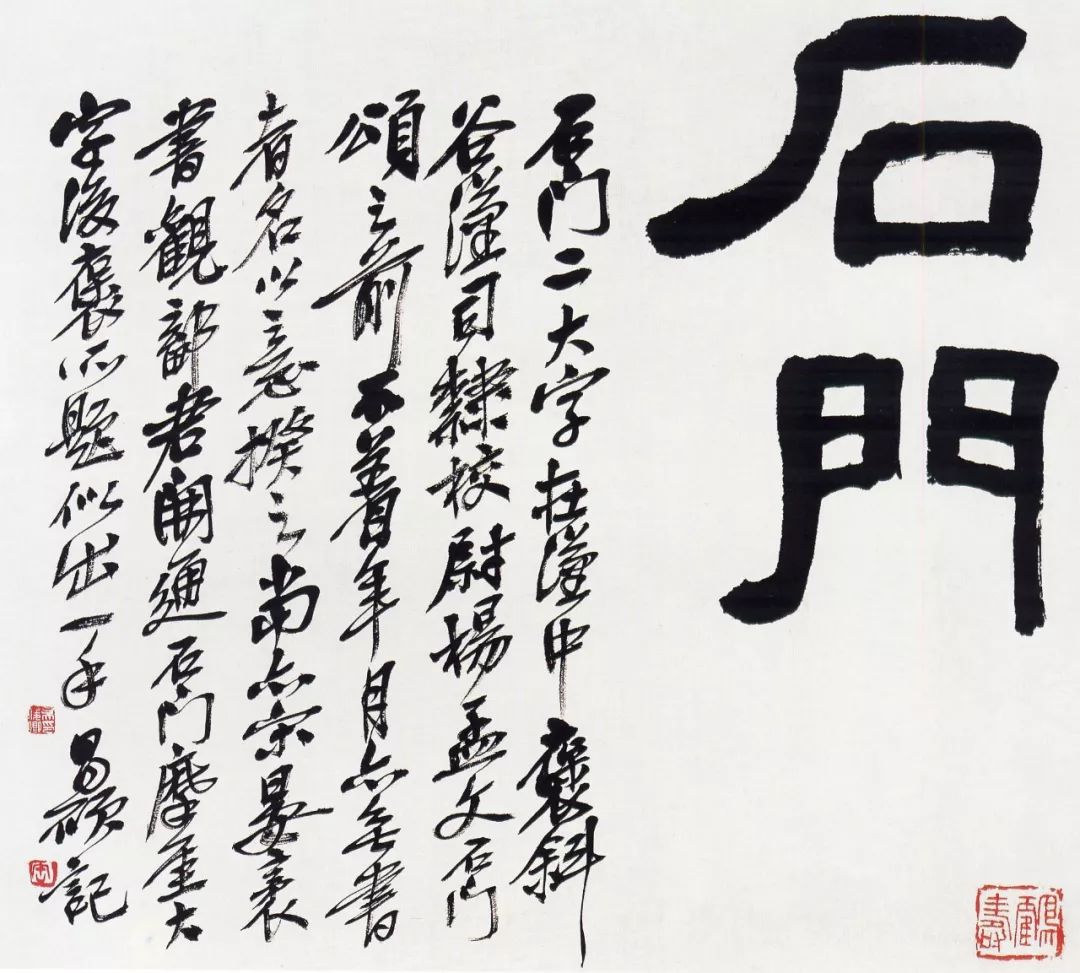 石門
石門二大字在漢中褒斜
谷漢司隸校尉楊孟文石門
頌之前不著年月亦無書
者名以意揆之當亦宋晏袤
書觀鄐君開通石門摩厓大
字後袤所題似出一手 昌碩記